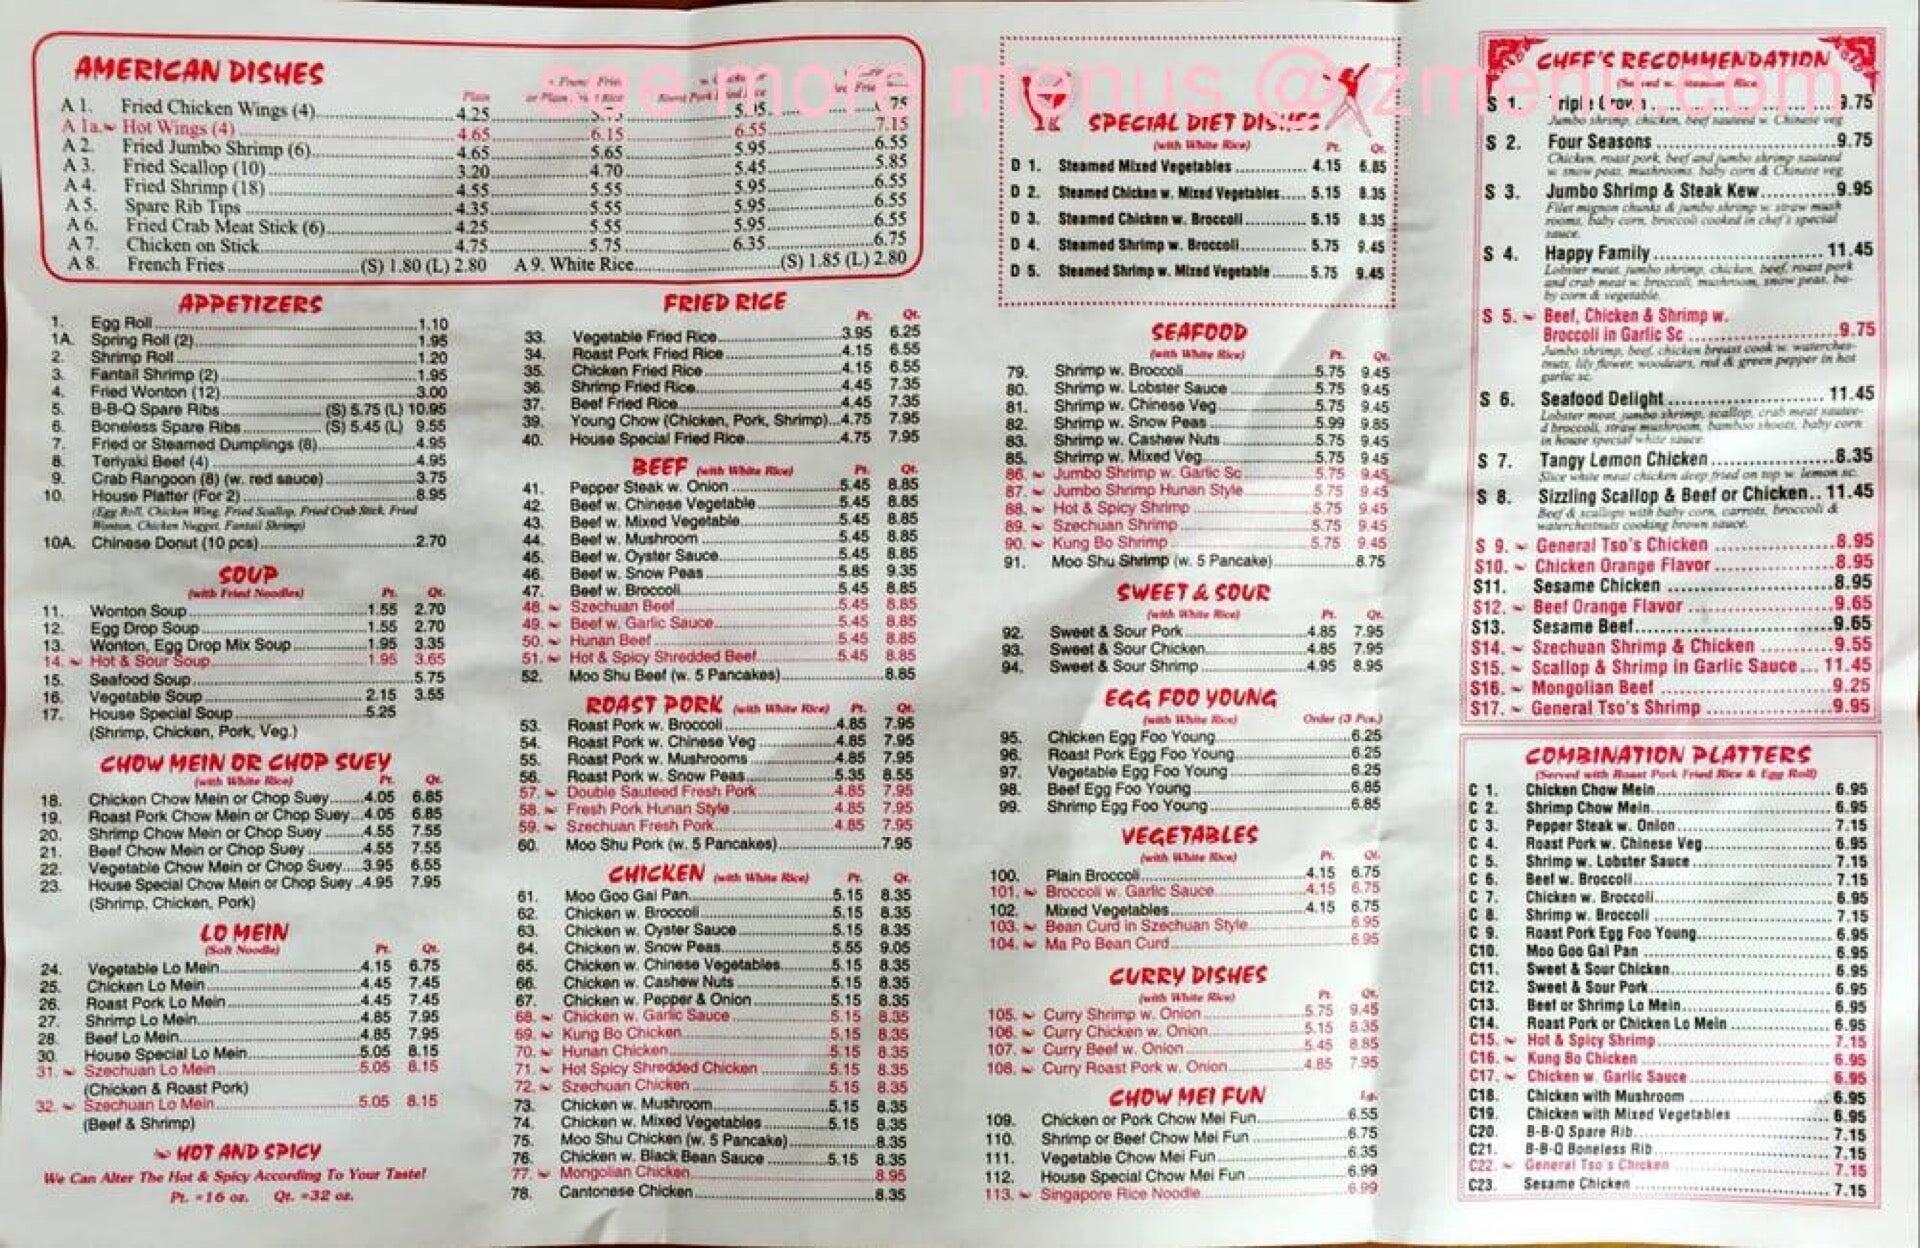 see more menus @ zmenu.com
AMERICAN DISHES
Plain
A 1. Fried Chicken Wings (4) 4.25
A 1a. Hot Wings (4) 4.65 6.15 6.55 7.15
A 2. Fried Jumbo Shrimp (6) 4.65 5.65 5.95 6.55
A 3. Fried Scallop (10) 3.20 4.70 5.45 5.85
A 4. Fried Shrimp (18) 4.55 5.55 5.95 6.55
A 5. Spare Rib Tips 4.35 5.55 5.95 6.55
A 6. Fried Crab Meat Stick (6) 4.25 5.55 5.95 6.55
A 7. Chicken on Stick 4.75 5.75 6.35 6.75
A 8. French Fries (S) 1.80 (L) 2.80 A 9. White Rice (S) 1.85 (L) 2.80
APPETIZERS
1. Egg Roll 1.10
1A. Spring Roll (2) 1.95
2. Shrimp Roll 1.20
3. Fantail Shrimp (2) 1.95
4. Fried Wonton (12) 3.00
5. B-B-Q Spare Ribs (S) 5.75 (L) 10.95
6. Boneless Spare Ribs (S) 5.45 (L) 9.55
7. Fried or Steamed Dumplings (8) 4.95
8. Teriyaki Beef (4) 4.95
9. Crab Rangoon (8) (w. red sauce) 3.75
10. House Platter (For 2) 8.95
(Egg Roll, Chicken Wing, Fried Scallop, Fried Crab Stick, Fried
Wonton, Chicken Nugget, Fantail Shrimp)
10A. Chinese Donut (10 pcs) 2.70
SOUP
(with Fried Noodles) Pt. Qt.
11. Wonton Soup 1.55 2.70
12. Egg Drop Soup 1.55 2.70
13. Wonton, Egg Drop Mix Soup 1.95 3.35
14. Hot & Sour Soup 1.95 3.65
15. Seafood Soup 5.75
16. Vegetable Soup 2.15 3.55
17. House Special Soup 5.25
(Shrimp, Chicken, Pork, Veg.)
CHOW MEIN OR CHOP SUEY
(with White Rice) Pt. Qt.
18. Chicken Chow Mein or Chop Suey 4.05 6.85
19. Roast Pork Chow Mein or Chop Suey 4.05 6.85
20. Shrimp Chow Mein or Chop Suey 4.55 7.55
21. Beef Chow Mein or Chop Suey 4.55 7.55
22. Vegetable Chow Mein or Chop Suey 3.95 6.55
23. House Special Chow Mein or Chop Suey 4.95 7.95
(Shrimp, Chicken, Pork)
LO MEIN
(Soft Noodle) Pt. Qt.
24. Vegetable Lo Mein 4.15 6.75
25. Chicken Lo Mein 4.45 7.45
26. Roast Pork Lo Mein 4.45 7.45
27. Shrimp Lo Mein 4.85 7.95
28. Beef Lo Mein 4.85 7.95
30. House Special Lo Mein 5.05 8.15
31. Szechuan Lo Mein 5.05 8.15
(Chicken & Roast Pork)
32. Szechuan Lo Mein 5.05 8.15
(Beef & Shrimp)
HOT AND SPICY
We Can Alter The Hot & Spicy According To Your Taste!
Pt. =16 oz. Qt. =32 oz.
FRIED RICE
Pt. Qt.
33. Vegetable Fried Rice 3.95 6.25
34. Roast Pork Fried Rice 4.15 6.55
35. Chicken Fried Rice 4.15 6.55
36. Shrimp Fried Rice 4.45 7.35
37. Beef Fried Rice 4.45 7.35
39. Young Chow (Chicken, Pork, Shrimp) 4.75 7.95
40. House Special Fried Rice 4.75 7.95
BEEF (with White Rice) Pt. Qt.
41. Pepper Steak w. Onion 5.45 8.85
42. Beef w. Chinese Vegetable 5.45 8.85
43. Beef w. Mixed Vegetable 5.45 8.85
44. Beef w. Mushroom 5.45 8.85
45. Beef w. Oyster Sauce 5.45 8.85
46. Beef w. Snow Peas 5.85 9.35
47. Beef w. Broccoli 5.45 8.85
48. Szechuan Beef 5.45 8.85
49. Beef w. Garlic Sauce 5.45 8.85
50. Hunan Beef 5.45 8.85
51. Hot & Spicy Shredded Beef 5.45 8.85
52. Moo Shu Beef (w. 5 Pancakes) 8.85
ROAST PORK (with White Rice) Pt. Qt.
53. Roast Pork w. Broccoli 4.85 7.95
54. Roast Pork w. Chinese Veg 4.85 7.95
55. Roast Pork w. Mushrooms 4.85 7.95
56. Roast Pork w. Snow Peas 5.35 8.55
57. Double Sauteed Fresh Pork 4.85 7.95
58. Fresh Pork Hunan Style 4.85 7.95
59. Szechuan Fresh Pork 4.85 7.95
60. Moo Shu Pork (w. 5 Pancakes) 7.95
CHICKEN (with White Rice) Pt. Qt.
61. Moo Goo Gai Pan 5.15 8.35
62. Chicken w. Broccoli 5.15 8.35
63. Chicken w. Oyster Sauce 5.15 8.35
64. Chicken w. Snow Peas 5.55 9.05
65. Chicken w. Chinese Vegetables 5.15 8.35
66. Chicken w. Cashew Nuts 5.15 8.35
67. Chicken w. Pepper & Onion 5.15 8.35
68. Chicken w. Garlic Sauce 5.15 8.35
69. Kung Bo Chicken 5.15 8.35
70. Hunan Chicken 5.15 8.35
71. Hot Spicy Shredded Chicken 5.15 8.35
72. Szechuan Chicken 5.15 8.35
73. Chicken w. Mushroom 5.15 8.35
74. Chicken w. Mixed Vegetables 5.15 8.35
75. Moo Shu Chicken (w. 5 Pancake) 8.35
76. Chicken w. Black Bean Sauce 5.15 8.35
77. Mongolian Chicken 8.95
78. Cantonese Chicken 8.35
SPECIAL DIET DISHES
(with White Rice) Pt. Qt.
D 1. Steamed Mixed Vegetables 4.15 6.85
D 2. Steamed Chicken w. Mixed Vegetables 5.15 8.35
D 3. Steamed Chicken w. Broccoli 5.15 8.35
D 4. Steamed Shrimp w. Broccoli 5.75 9.45
D 5. Steamed Shrimp w. Mixed Vegetable 5.75 9.45
SEAFOOD
(with White Rice) Pt. Qt.
79. Shrimp w. Broccoli 5.75 9.45
80. Shrimp w. Lobster Sauce 5.75 9.45
81. Shrimp w. Chinese Veg 5.75 9.45
82. Shrimp w. Snow Peas 5.99 9.85
83. Shrimp w. Cashew Nuts 5.75 9.45
85. Shrimp w. Mixed Veg 5.75 9.45
86. Jumbo Shrimp w. Garlic Sc 5.75 9.45
87. Jumbo Shrimp Hunan Style 5.75 9.45
88. Hot & Spicy Shrimp 5.75 9.45
89. Szechuan Shrimp 5.75 9.45
90. Kung Bo Shrimp 5.75 9.45
91. Moo Shu Shrimp (w. 5 Pancake) 8.75
SWEET & SOUR
(with White Rice) Pt. Qt.
92. Sweet & Sour Pork 4.85 7.95
93. Sweet & Sour Chicken 4.85 7.95
94. Sweet & Sour Shrimp 4.95 8.95
EGG FOO YOUNG
(with White Rice) Order (3 Pcs.)
95. Chicken Egg Foo Young 6.25
96. Roast Pork Egg Foo Young 6.25
97. Vegetable Egg Foo Young 6.25
98. Beef Egg Foo Young 6.85
99. Shrimp Egg Foo Young 6.85
VEGETABLES
(with White Rice) Pt. Qt.
100. Plain Broccoli 4.15 6.75
101. Broccoli w. Garlic Sauce 4.15 6.75
102. Mixed Vegetables 4.15 6.75
103. Bean Curd in Szechuan Style 6.95
104. Ma Po Bean Curd 6.95
CURRY DISHES
(with White Rice) Pt. Qt.
105. Curry Shrimp w. Onion 5.75 9.45
106. Curry Chicken w. Onion 5.15 8.35
107. Curry Beef w. Onion 5.45 8.85
108. Curry Roast Pork w. Onion 4.85 7.95
CHOW MEI FUN
Lg.
109. Chicken or Pork Chow Mei Fun 6.55
110. Shrimp or Beef Chow Mei Fun 6.75
111. Vegetable Chow Mei Fun 6.35
112. House Special Chow Mei Fun 6.99
113. Singapore Rice Noodle 6.99
CHEF'S RECOMMENDATION
(Served w. Steamed Rice)
S 1. Triple Crown 9.75
Jumbo shrimp, chicken, beef sauteed w. Chinese veg.
S 2. Four Seasons 9.75
Chicken, roast pork, beef and jumbo shrimp sauteed
w. snow peas, mushrooms, baby corn & Chinese veg.
S 3. Jumbo Shrimp & Steak Kew 9.95
Filet mignon chunks & jumbo shrimp w. straw mush
rooms, baby corn, broccoli cooked in chef's special
sauce.
S 4. Happy Family 11.45
Lobster meat, jumbo shrimp, chicken, beef, roast pork
and crab meat w. broccoli, mushroom, snow peas, ba-
by corn & vegetable.
S 5. Beef, Chicken & Shrimp w.
Broccoli in Garlic Sc 9.75
Jumbo shrimp, beef, chicken breast cook w. waterches-
tnuts, lily flower, woodears, red & green pepper in hot
garlic sc.
S 6. Seafood Delight 11.45
Lobster meat, jumbo shrimp, scallop, crab meat sautee-
d broccoli, straw mushroom, bamboo shoots, baby corn
in house special white sauce.
S 7. Tangy Lemon Chicken 8.35
Slice white meat chicken deep fried on top w. lemon sc.
S 8. Sizzling Scallop & Beef or Chicken 11.45
Beef & scallops with baby corn, carrots, broccoli &
waterchestnuts cooking brown sauce.
S 9. General Tso's Chicken 8.95
S10. Chicken Orange Flavor 8.95
S11. Sesame Chicken 8.95
S12. Beef Orange Flavor 9.65
S13. Sesame Beef 9.65
S14. Szechuan Shrimp & Chicken 9.55
S15. Scallop & Shrimp in Garlic Sauce 11.45
S16. Mongolian Beef 9.25
S17. General Tso's Shrimp 9.95
COMBINATION PLATTERS
(Served with Roast Pork Fried Rice & Egg Roll)
C 1. Chicken Chow Mein 6.95
C 2. Shrimp Chow Mein 6.95
C 3. Pepper Steak w. Onion 7.15
C 4. Roast Pork w. Chinese Veg 6.95
C 5. Shrimp w. Lobster Sauce 7.15
C 6. Beef w. Broccoli 7.15
C 7. Chicken w. Broccoli 6.95
C 8. Shrimp w. Broccoli 7.15
C 9. Roast Pork Egg Foo Young 6.95
C10. Moo Goo Gai Pan 6.95
C11. Sweet & Sour Chicken 6.95
C12. Sweet & Sour Pork 6.95
C13. Beef or Shrimp Lo Mein 6.95
C14. Roast Pork or Chicken Lo Mein 6.95
C15. Hot & Spicy Shrimp 7.15
C16. Kung Bo Chicken 6.95
C17. Chicken w. Garlic Sauce 6.95
C18. Chicken with Mushroom 6.95
C19. Chicken with Mixed Vegetables 6.95
C20. B-B-Q Spare Rib 7.15
C21. B-B-Q Boneless Rib 7.15
C22. General Tso's Chicken 7.15
C23. Sesame Chicken 7.15